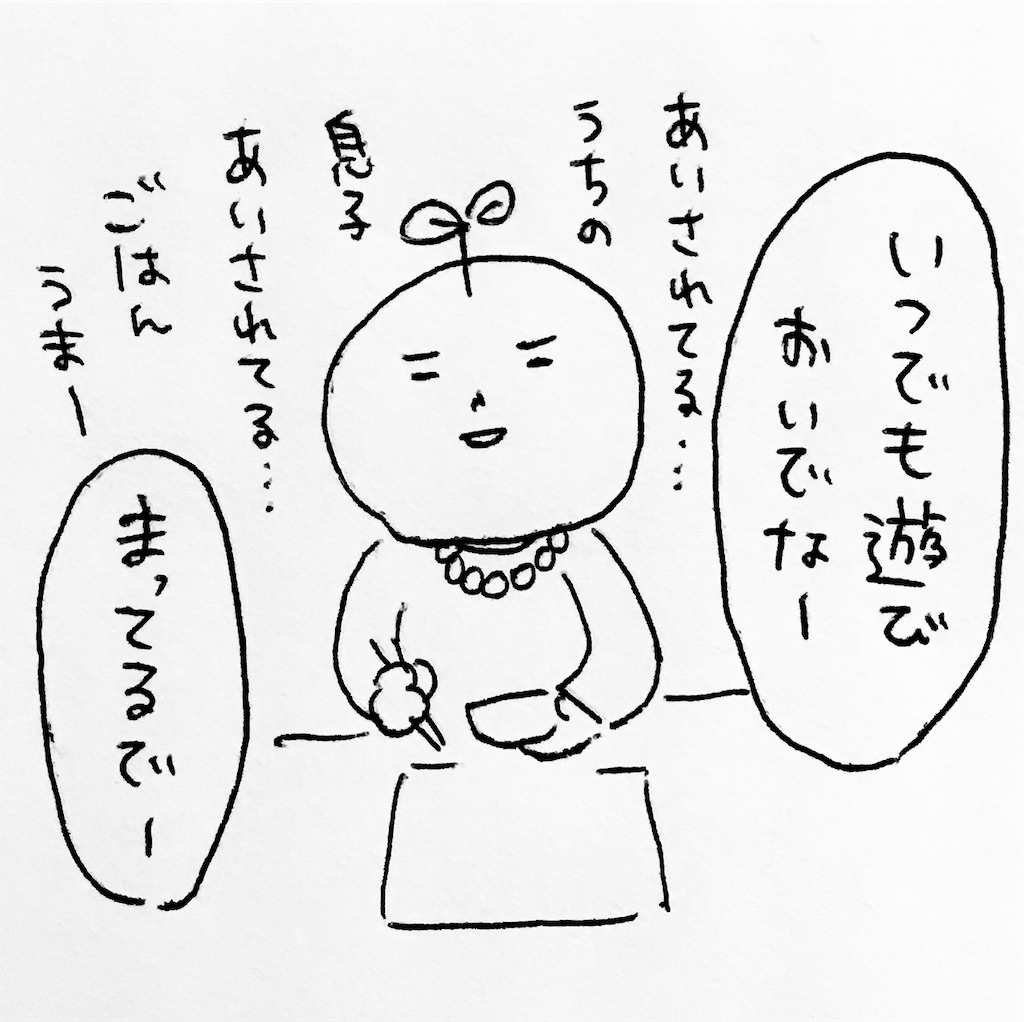 いつでも遊び
おいでなー
あいされてる…
うちの
息子
あいされてる…
ごはん
うまー
まってるでー